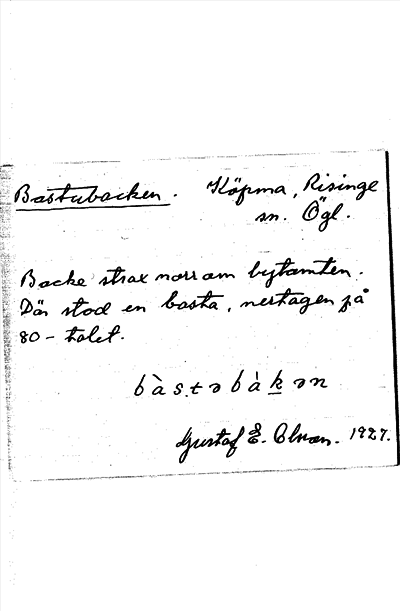 Bastubacken. Köpma, Risinge
sn. Ögl.
Backe strax norr om bytomten.
Där stod en basta, nertagen på
80-talet.
bàstəbàkən
Gustaf E.
1927.